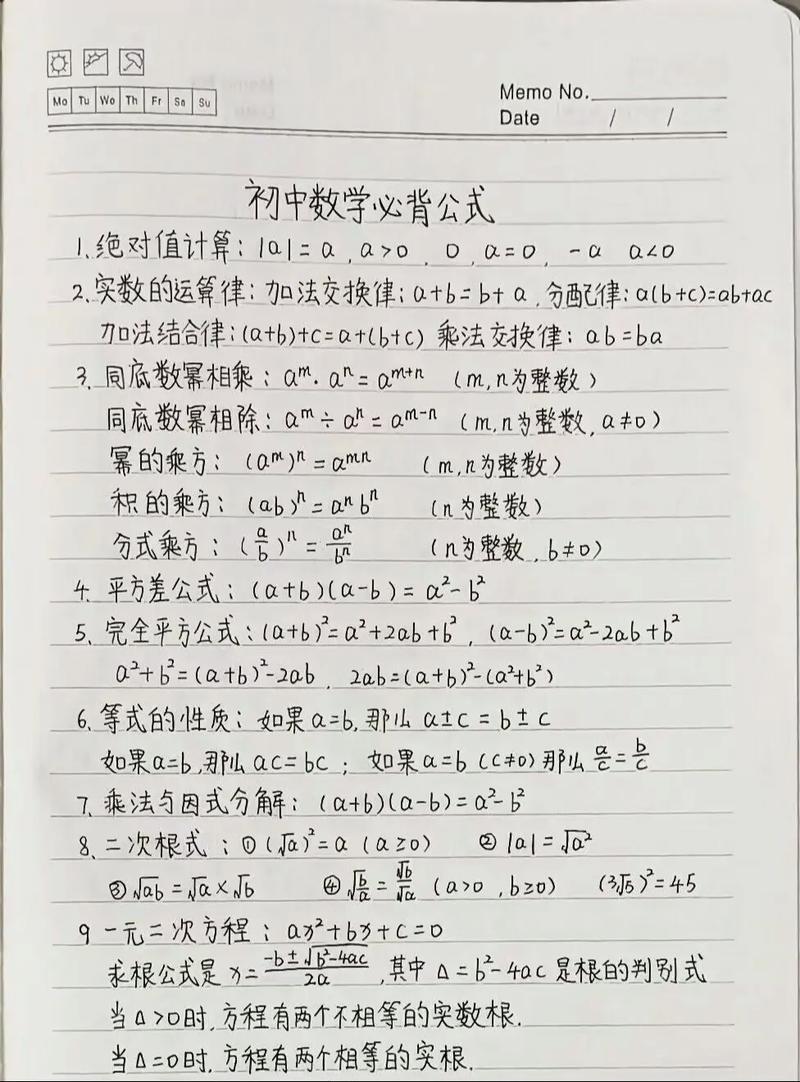 Mo Tu We Th Fr Sa Su
Memo No.
Date / /
初中数学必背公式
1.绝对值计算：|a|=a，a>0，0，a=0，-a a<0
2.实数的运算律：加法交换律：a+b=b+a，分配律：a(b+c)=ab+ac
加法结合律：(a+b)+c=a+(b+c) 乘法交换律：ab=ba
3.同底数幂相乘：aᵐ·aⁿ=aᵐ⁺ⁿ （m,n为整数）
同底数幂相除：aᵐ÷aⁿ=aᵐ⁻ⁿ （m,n为整数，a≠0）
幂的乘方：(aᵐ)ⁿ=aᵐⁿ （m,n为整数）
积的乘方：(ab)ⁿ=aⁿbⁿ （n为整数）
分式乘方：(a/b)ⁿ=aⁿ/bⁿ （n为整数，b≠0）
4.平方差公式：(a+b)(a-b)=a²-b²
5、完全平方公式：(a+b)²=a²+2ab+b²，(a-b)²=a²-2ab+b²
a²+b²=(a+b)²-2ab，2ab=(a+b)²-(a²+b²)
6、等式的性质：如果a=b，那么a±c=b±c
如果a=b，那么ac=bc；如果a=b（c≠0）那么a/c=b/c
7、乘法与因式分解：(a+b)(a-b)=a²-b²
8、二次根式：①(√a)²=a（a≥0） ②|a|=√a²
③√ab=√a×√b ④√b/a=√b/√a（a>0，b≥0） (3√5)²=45
9 一元二次方程：ax²+bx+c=0
求根公式是x=-b±√b²-4ac/2a，其中Δ=b²-4ac是根的判别式
当Δ>0时，方程有两个不相等的实数根.
当Δ=0时，方程有两个相等的实根.